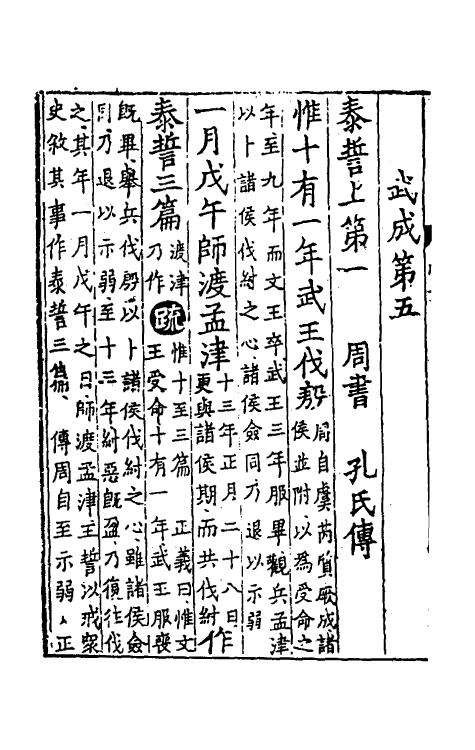 武成第五
泰誓上第一　周書　孔氏傳
惟十有一年武王伐殷
周自虞芮質厥成諸
侯並附以爲受命之
年至九年而文王卒武王三年服畢觀兵孟津
以卜諸侯伐紂之心諸侯僉同乃退以示弱
一月戊午師渡孟津
十三年正月二十八日
更與諸侯期而共伐紂
作
泰誓三篇
渡津
乃作
疏
惟十至三篇　正義曰惟文
王受命十有一年武王服喪
旣畢舉兵伐殷以卜諸侯伐紂之心雖諸侯僉
同乃退以示弱至十三年紂惡旣盈乃復往伐
之其年一月戊午之日師渡孟津王誓以戒衆
史敘其事作泰誓三篇　傳周自至示弱　正